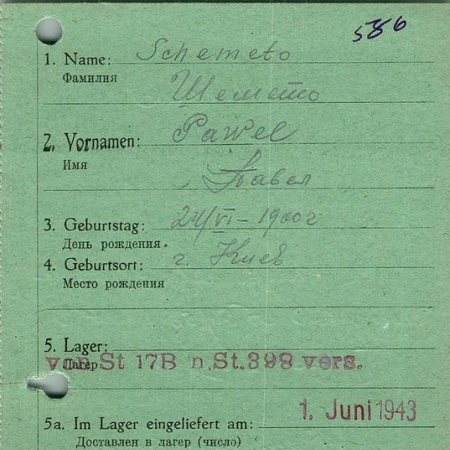 586
1. Name: Schemeto
Фамилия
Шемето
2. Vornamen: Pawel
Имя
Павел
3. Geburtstag: 24/VI – 1900 г
День рождения.
4. Geburtsort: г. Киев
Место рождения
5. Lager:
Лагер
von St 17B n.St.398 vers.
1. Juni 1943
5a. Im Lager eingeliefert am:
Доставлен в лагер (число)